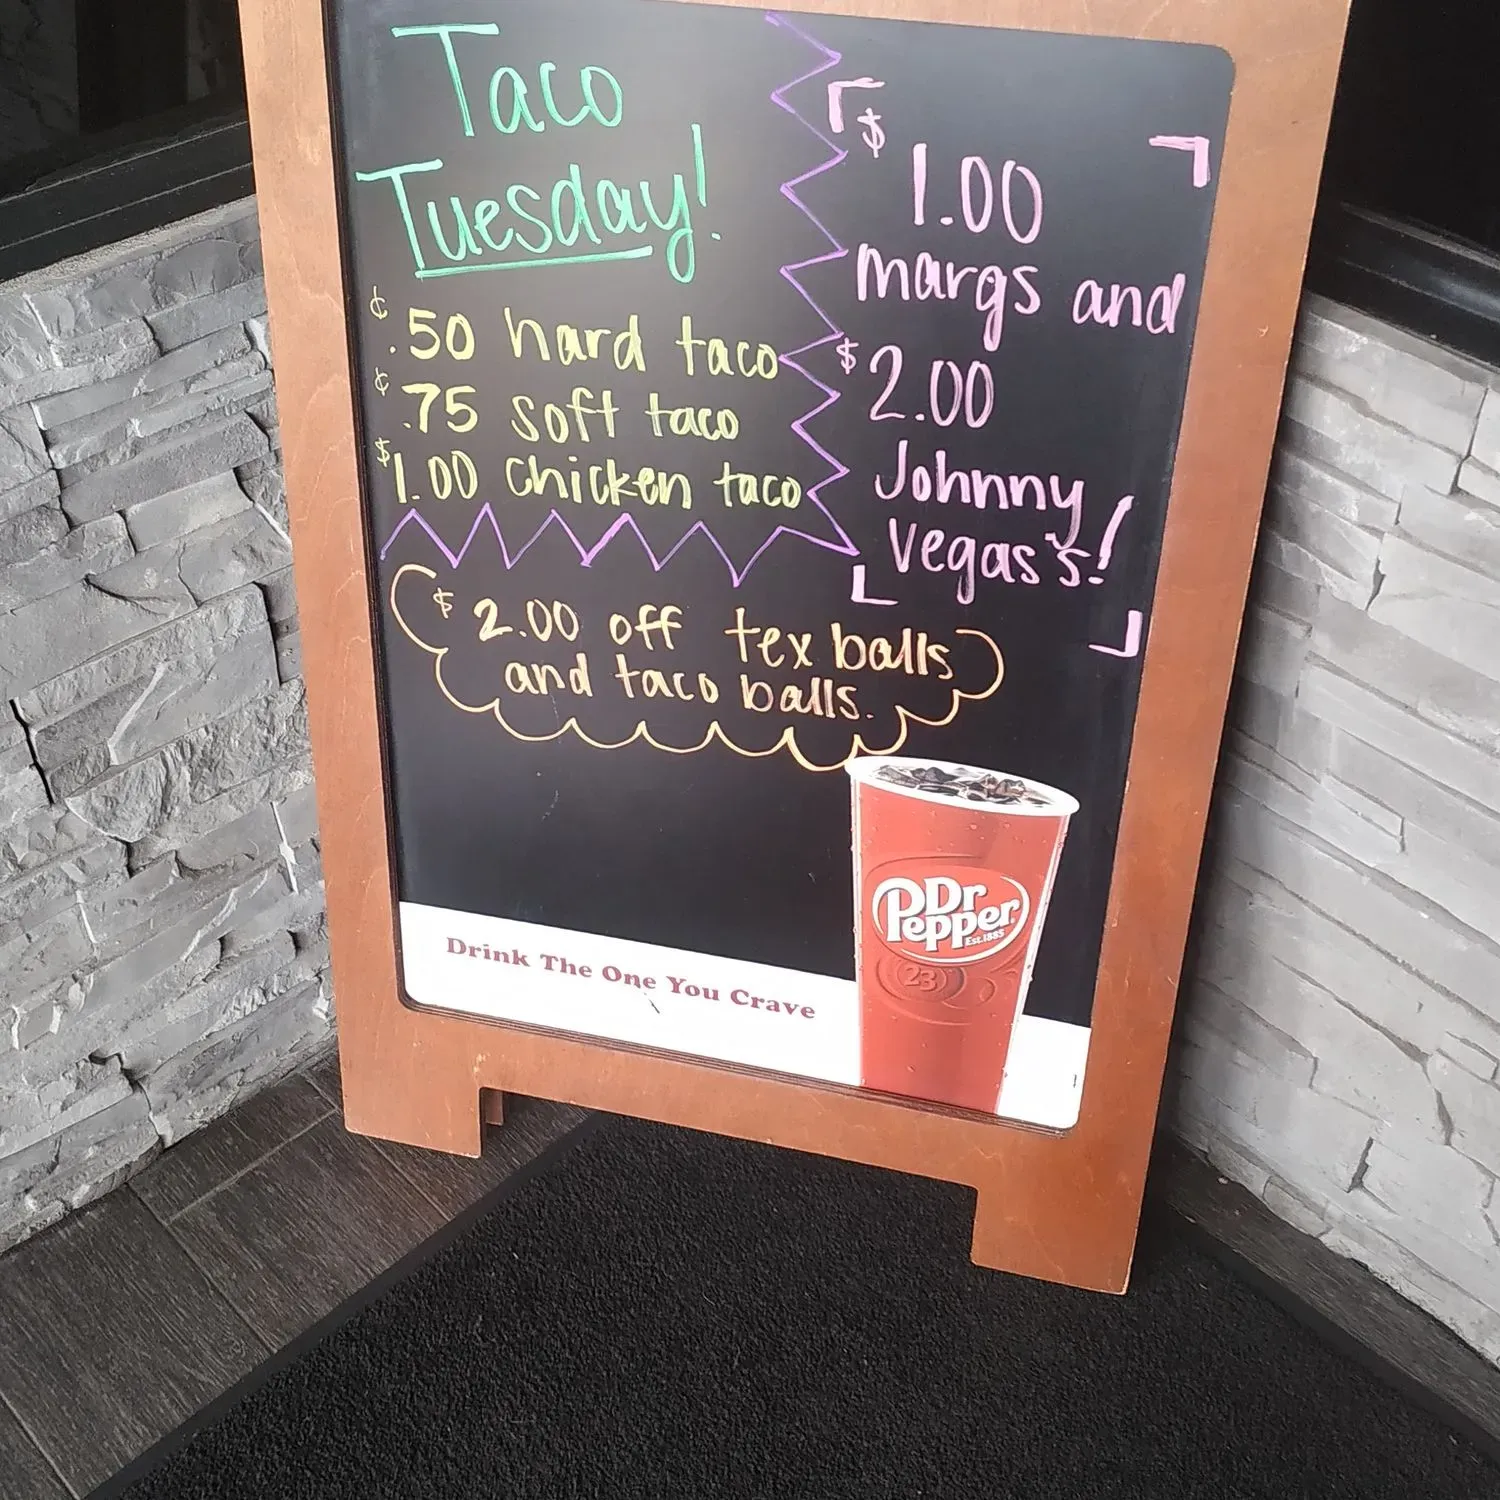 Taco
Tuesday!
¢.50 hard taco
¢.75 soft taco
$1.00 chicken taco
$1.00
margs and
$2.00
Johnny
Vegas's!
$2.00 off tex balls
and taco balls.
Dr
Pepper
Est.1885
23
Drink The One You Crave